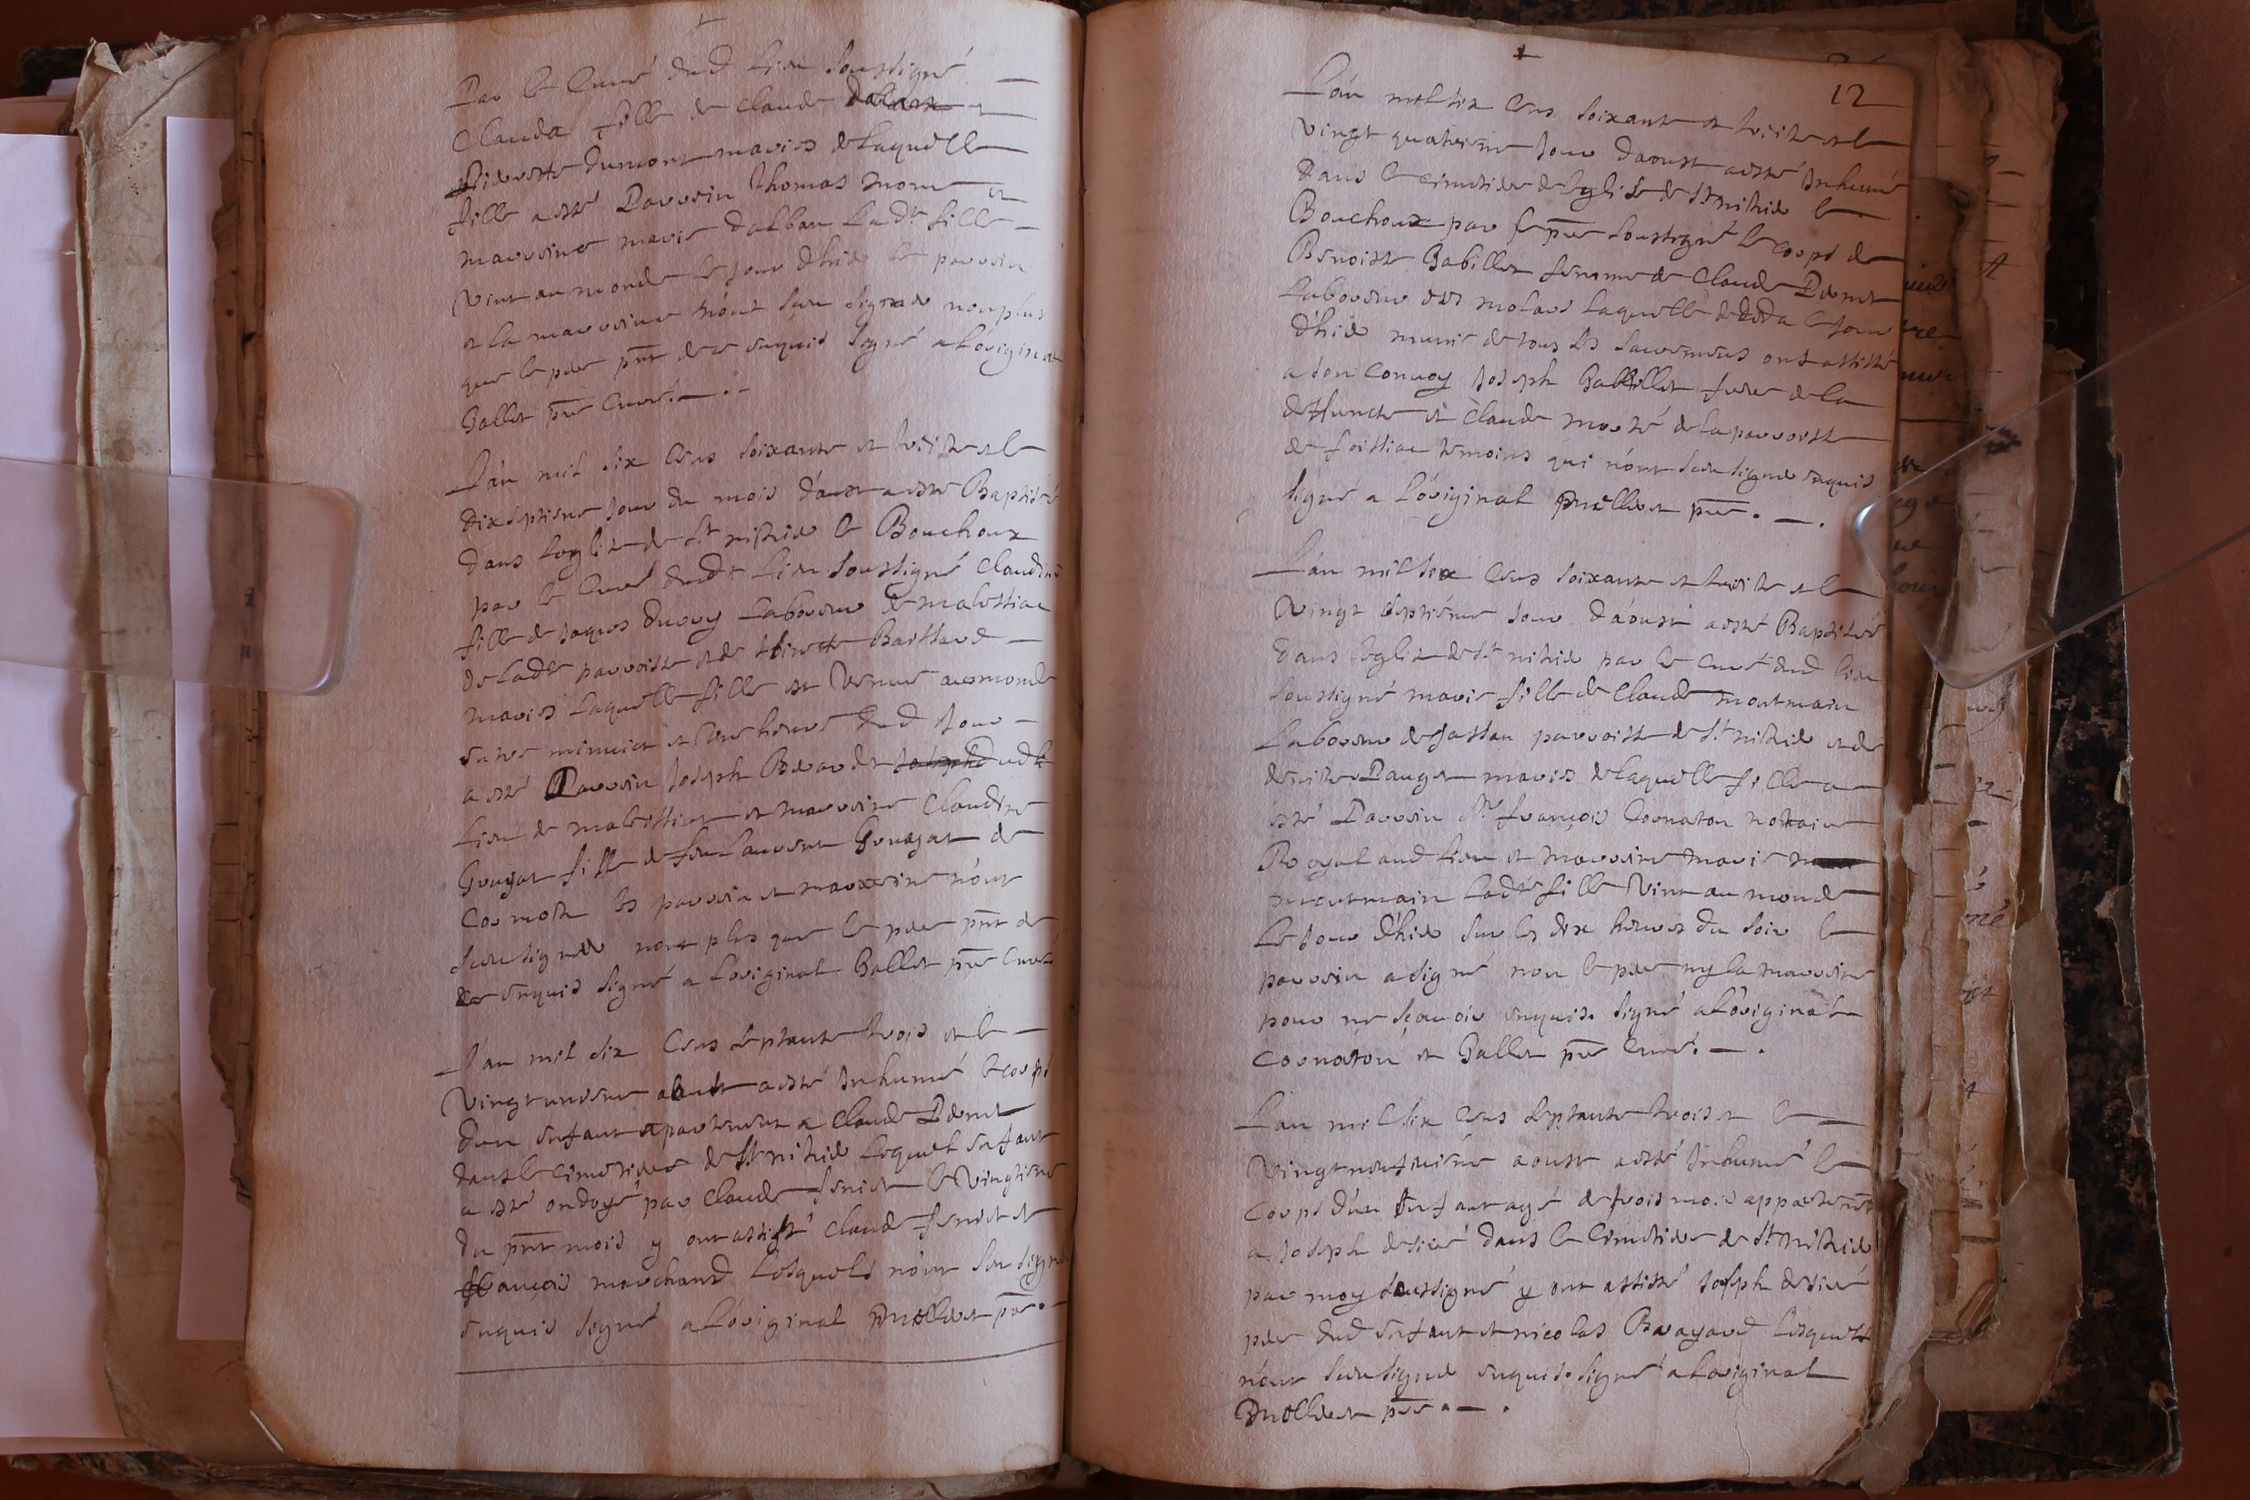 Par le Curé dud lieu soussigné
Clauda fille de claude
pierrette dumont mariés de laquelle
fille a esté Parrain Thomas morel et
marraine marie dalban Ladte fille
vint au monde le jour d'hier le parrain
et la marraine n'ont sceu signer non plus
que le pere pnt de ce enquis signé a l'original
Ballet pre Curé.
L'an mil six cens soixante et treize et le
dixseptieme jour du mois d'aost a esté Baptisé
dans l'eglise de st nithier le Bouchoux
par le Curé dudt lieu soussigné claudine
fille de jaques ducry laboureur de malessiat
de ladte parroisse et de Baillard
mariés laquelle fille est venue au monde
entre minuict et une heure dud jour
a esté Parrain Joseph Berardet dudt
lieu de malessiat et marraine claudine
Gougat fille de feu laurent Gougat de
Cormoz les parrain et marraine n'ont
sceu signer non plus que le pere pnt de
ce enquis signé a l'original Ballet pre Curé
L'an mil six cens septante trois et le
vingtunieme aoust a esté inhumé le corps
d'un enfant apartenent a claude Pernet
dans le cimetiere de st nithier lequel enfant
a esté ondoyé par claude fenict le vingtieme
du pnt mois y ont assisté claude fenict et
françois marchand lesquels n'ont sceu signer
enquis signé a l'original pre
12
L'an mil six cens soixante et treize et le
vingt quatrieme jour d'aoust a esté inhumé
dans le cimetiere de leglise de st nithier le
Bouchoux par le pre soussigné le corps de
Benoiste Babillet femme de claude Pernet
laboureur es molars laquelle deceda le jour
d'hier munie de tous les sacremens ont assisté
a son convoy Joseph Babillet frere de la
deffuncte et claude de la parroisse
de foissiat temoins qui n'ont sceu signer enquis
signé a l'original pre.
L'an mil six cens soixante et treize et le
vingt septiéme jour d'aoust a esté Baptisée
dans leglise de st nithier par le curé dud lieu
soussigné marie fille de claude montmain
laboureur de parroisse de st nithier et de
denise Pauget mariés de laquelle fille a
esté Parrain Mr françois Cornaton notaire
Royal aud lieu et marraine marie
montmain ladte fille vint au monde
le jour d'hier sur les dix heures du soir le
parrain a signé non le pere ny la marraine
pour ne sçavoir enquis signé a l'original
Cornaton et Ballet pre Curé.
L'an mil six cens septante trois et le
vingtneufviéme aoust a esté inhumé le
corps d'un enfant agé de trois mois appartent
a Joseph dans le Cimetiere de st nithier
par moy soussigné y ont assisté Joseph
pere dud enfant et nicolas Brayard lesquels
n'ont sceu signer enquis signé a l'original
pre.